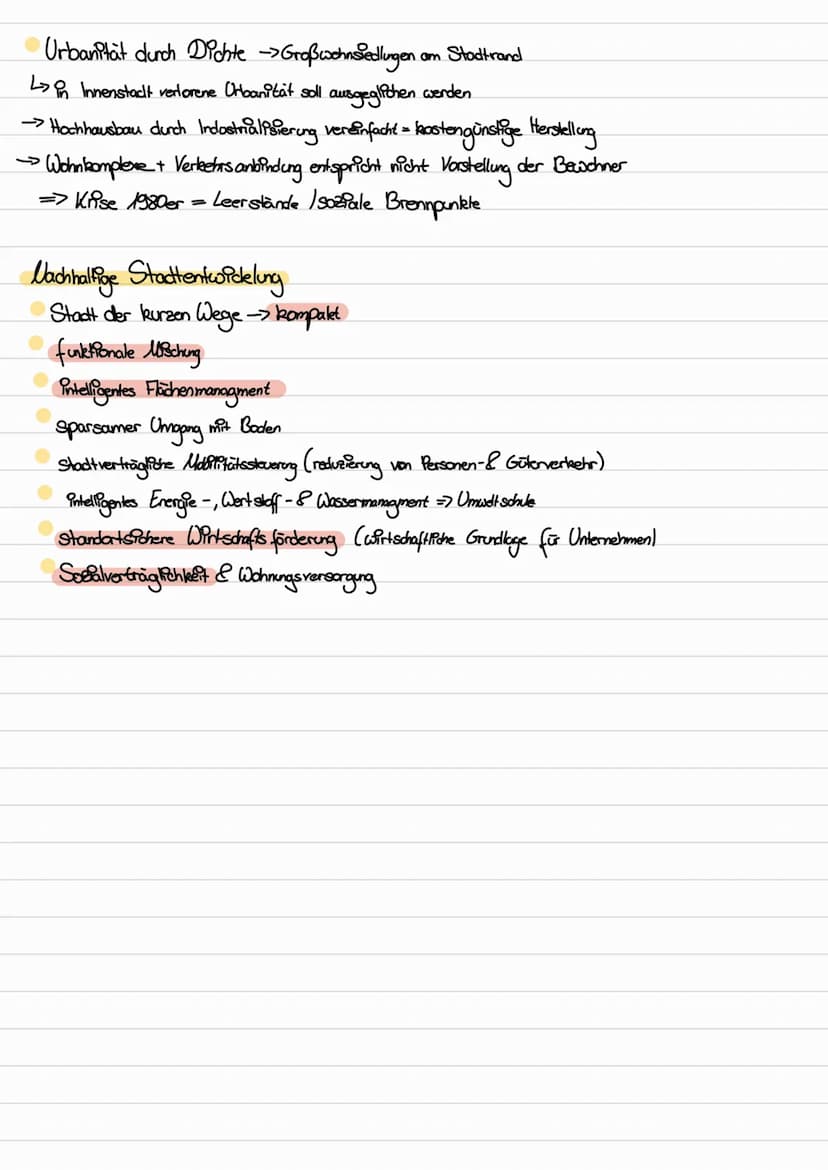 Urbanität durch Dichte → Großwohnsiedlungen am Stadtrand
↳ in Innenstadt verlorene Urbanität soll ausgeglichen werden
→ Hochhausbau durch Industrialisierung vereinfacht = kostengünstige Herstellung
→ Wohnkomplexe + Verkehrsanbindung entspricht nicht Vorstellung der Bewohner
=> Krise 1980er = Leerstände / soziale Brennpunkte
Nachhaltige Stadtentwickelung
Stadt der kurzen Wege → kompakt
funktionale Mischung
intelligentes Flächenmanagment
sparsamer Umgang mit Boden
Stadtverträgliche Mobilitätssteuerung (reduzierung von Personen- & Güterverkehr)
intelligentes Energie-, Wertstoff- & Wassermanagment => Umweltschutz
standortsichere Wirtschaftsförderung (wirtschaftliche Grundlage für Unternehmen)
Sozialverträglichkeit & Wohnungsversorgung